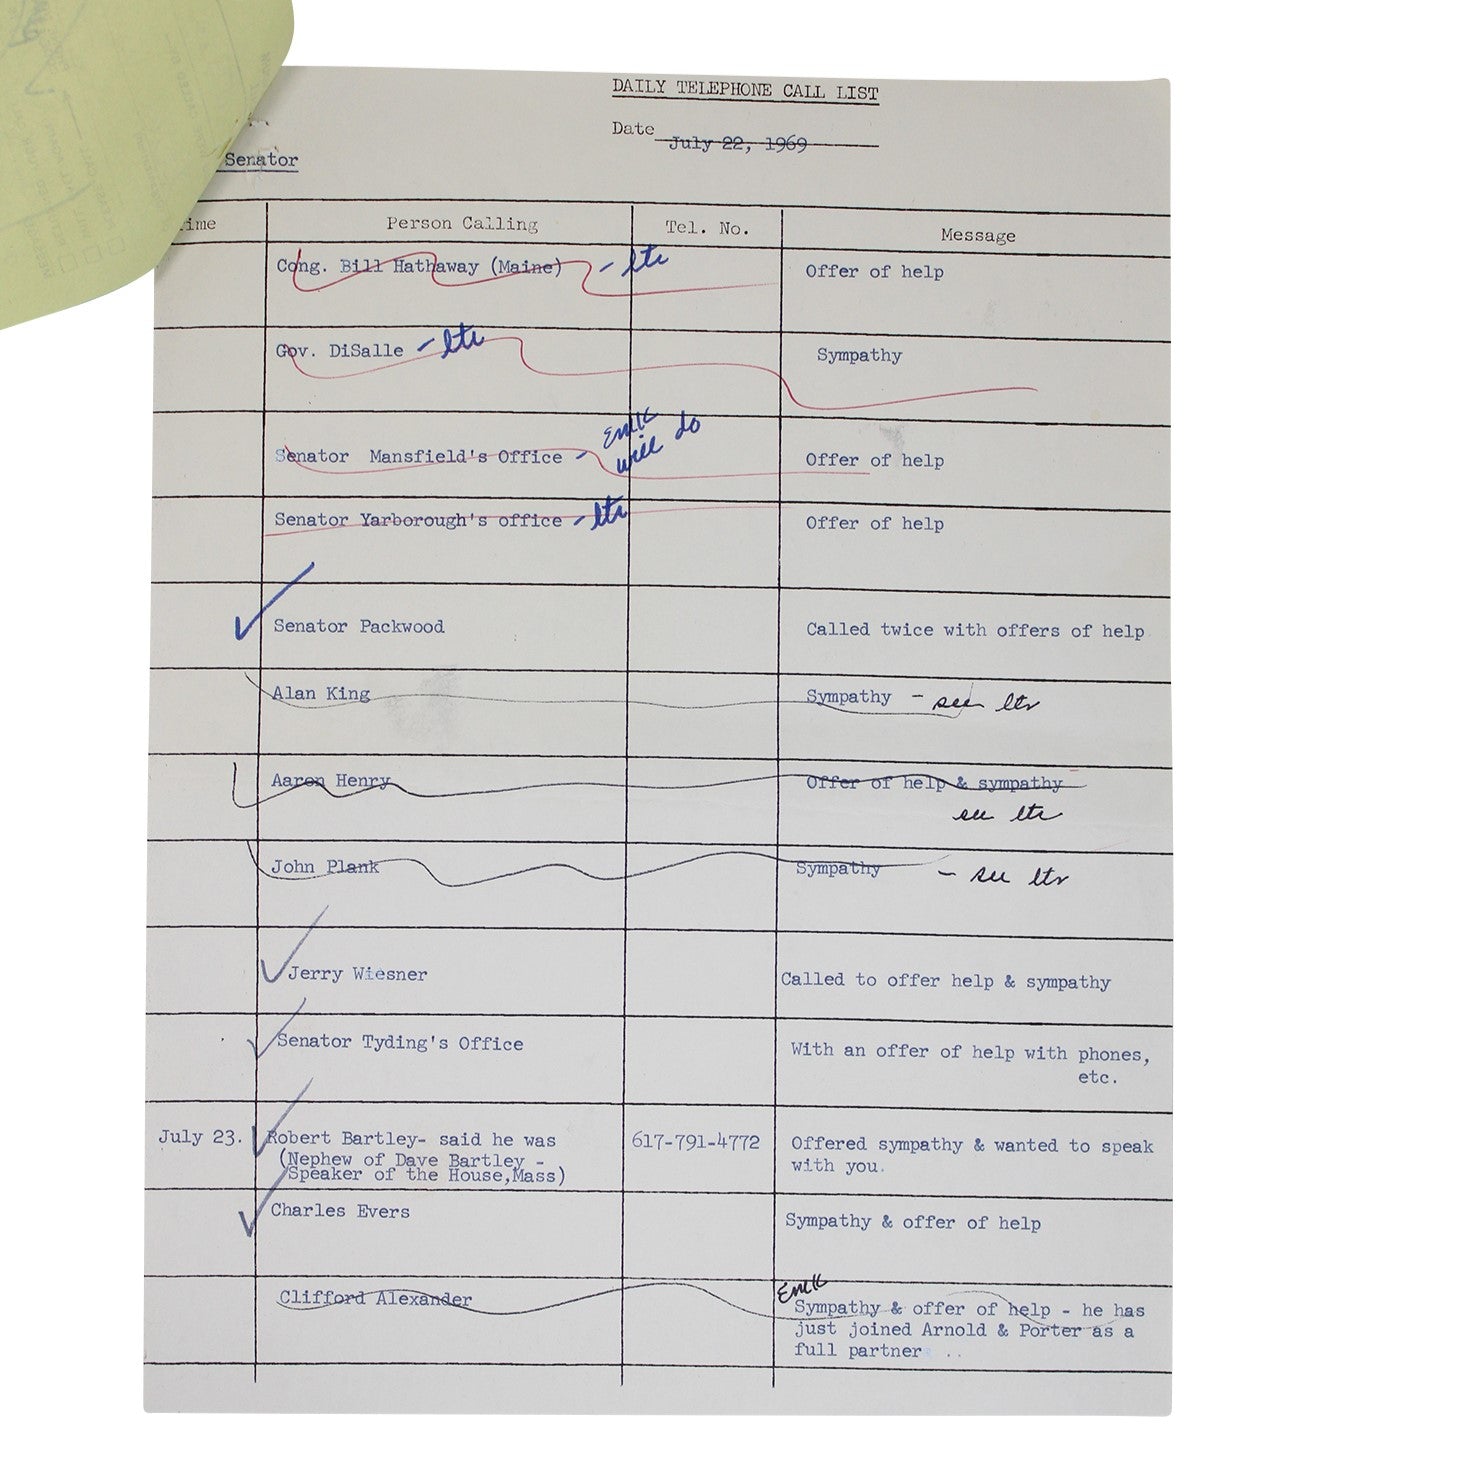 DAILY TELEPHONE CALL LIST
Date July 22, 1969
Senator
ime Person Calling Tel. No. Message
Cong. Bill Hathaway (Maine) - ltr Offer of help
Gov. DiSalle - ltr Sympathy
Senator Mansfield's Office - EMK will do Offer of help
Senator Yarborough's office - ltr Offer of help
Senator Packwood Called twice with offers of help
Alan King Sympathy - see ltr
Aaron Henry Offer of help & sympathy
see ltr
John Plank Sympathy - see ltr
Jerry Wiesner Called to offer help & sympathy
Senator Tyding's Office With an offer of help with phones,
etc.
July 23. Robert Bartley- said he was 617-791-4772 Offered sympathy & wanted to speak
(Nephew of Dave Bartley - with you.
Speaker of the House,Mass)
Charles Evers Sympathy & offer of help
EMK
Clifford Alexander Sympathy & offer of help - he has
just joined Arnold & Porter as a
full partner